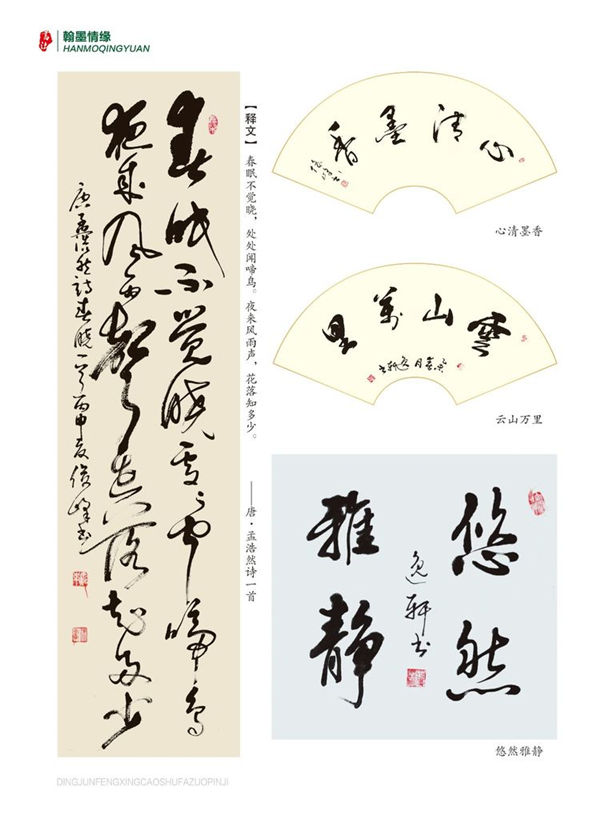 翰墨情缘
HANMOQINGYUAN
春眠不觉晓处处闻啼鸟
夜来风雨声花落知多少
唐孟浩然诗春晓一首丙申夏俊峰书
【释文】春眠不觉晓，处处闻啼鸟。夜来风雨声，花落知多少。
——唐·孟浩然诗一首
心清墨香
俊峰书
心清墨香
雲山萬里
云山万里
悠然
雅静
逸轩书
悠然雅静
DINGJUNFENGXINGCAOSHUFAZUOPINJI